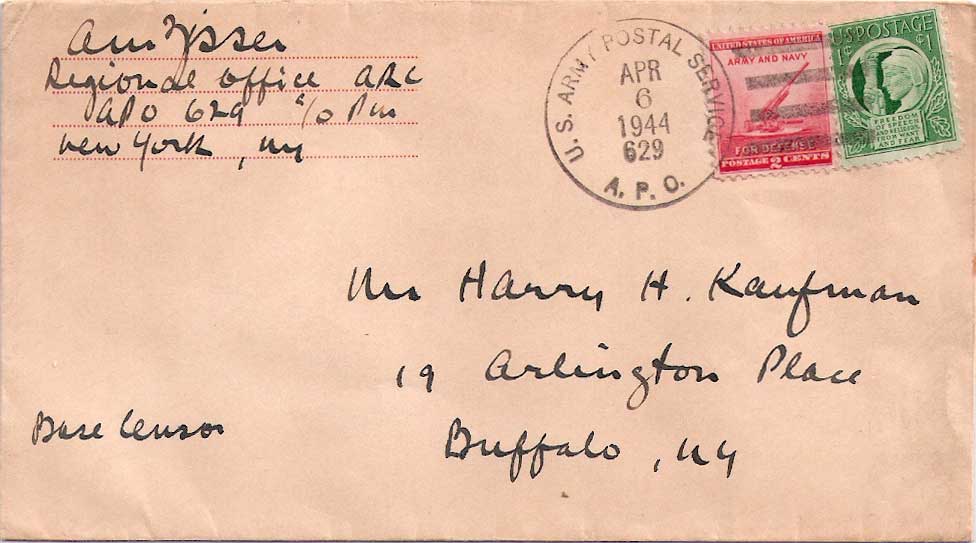 Regional Office ARC
APO 629 c/o PM
New York, NY
U. S. ARMY POSTAL SERVICE
APR
6
1944
629
A. P. O.
UNITED STATES OF AMERICA
ARMY AND NAVY
FOR DEFENSE
POSTAGE 2 CENTS
US POSTAGE
1¢ ¢1
FREEDOM
OF SPEECH
AND RELIGION,
FROM WANT
AND FEAR
Mr Harry H. Kaufman
19 Arlington Place
Buffalo, NY
Base Censor